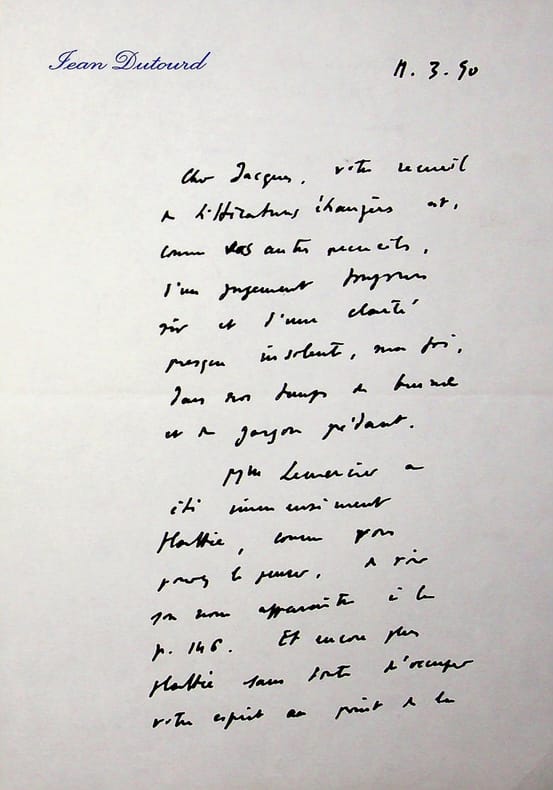 Jean Dutourd
11. 3. 90
Cher Jacques, votre recueil
de littératures étrangères est,
comme vos autres recueils,
d'un jugement toujours
sûr et d'une clarté
presque insolente, ma foi,
dans nos temps de brume
et de jargon pédant.
Mme Lemercier a
été immensément
flattée, comme vous
pouvez le penser, de voir
son nom apparaître à la
p. 146. Et encore plus
flattée sans doute d'occuper
votre esprit au point de la